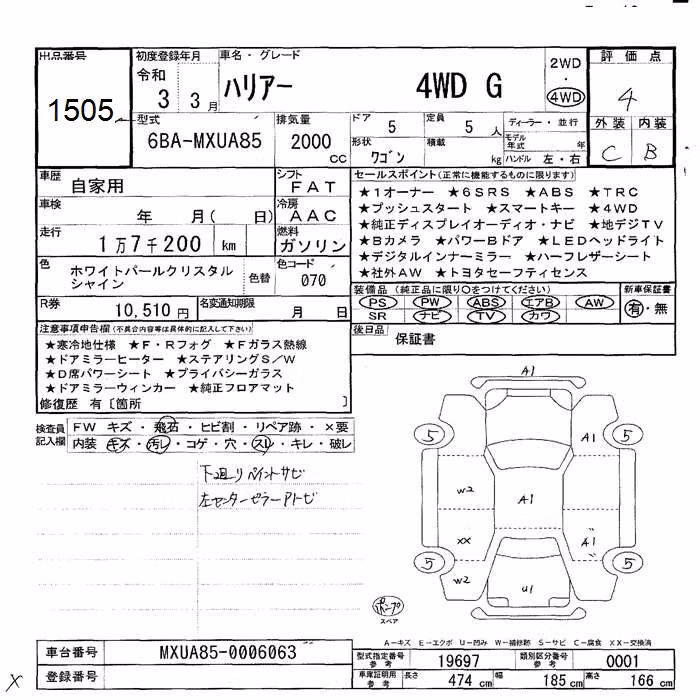 出品番号
1505
初度登録年月
令和
3 3月
車名・グレード
ハリアー 4WD G
2WD
・
4WD
評価点
4
外装 内装
C B
型式
6BA-MXUA85
排気量
2000
cc
ドア
5
定員
5 人
形状
ワゴン
積載
kg
ディーラー・並行
モデル年式 年
ハンドル 左・右
車歴
自家用
シフト
FAT
車検
年 月( 日)
冷房
AAC
走行
1万7千200 km
燃料
ガソリン
色
ホワイトパールクリスタル
シャイン
色替
色コード
070
R券
10,510円
名変通知期限
月 日
セールスポイント(正常に機能するものに限ります)
★1オーナー ★6SRS ★ABS ★TRC
★プッシュスタート ★スマートキー ★4WD
★純正ディスプレイオーディオ・ナビ ★地デジTV
★Bカメラ ★パワーBドア ★LEDヘッドライト
★デジタルインナーミラー ★ハーフレザーシート
★社外AW ★トヨタセーフティセンス
装備品 (純正品に限り○をつけてください)
PS PW ABS エアB AW
SR ナビ TV カワ
新車保証書
有・無
後日品
保証書
注意事項申告欄(不具合内容等は具体的に記入して下さい)
★寒冷地仕様 ★F・Rフォグ ★Fガラス熱線
★ドアミラーヒーター ★ステアリングS/W
★D席パワーシート ★プライバシーガラス
★ドアミラーウィンカー ★純正フロアマット
修復歴 有〔箇所 〕
検査員
記入欄
FW キズ・飛石・ヒビ割・リペア跡・×要
内装 キズ・汚レ・コゲ・穴・スレ・キレ・破レ
下廻りペイントサビ
左センターピラーアトビ
A1
5 5
A1
W2
A1
XX
A1
5 5
W2
U1
ポンプ
スペア
A-キズ E-エクボ U-凹み W-補修跡 S-サビ C-腐食 XX-交換済
車台番号
MXUA85-0006063
登録番号
X
型式指定番号
参考
19697
類別区分番号
参考
0001
車庫証明用
参考
長さ
474 cm
幅
185 cm
高さ
166 cm